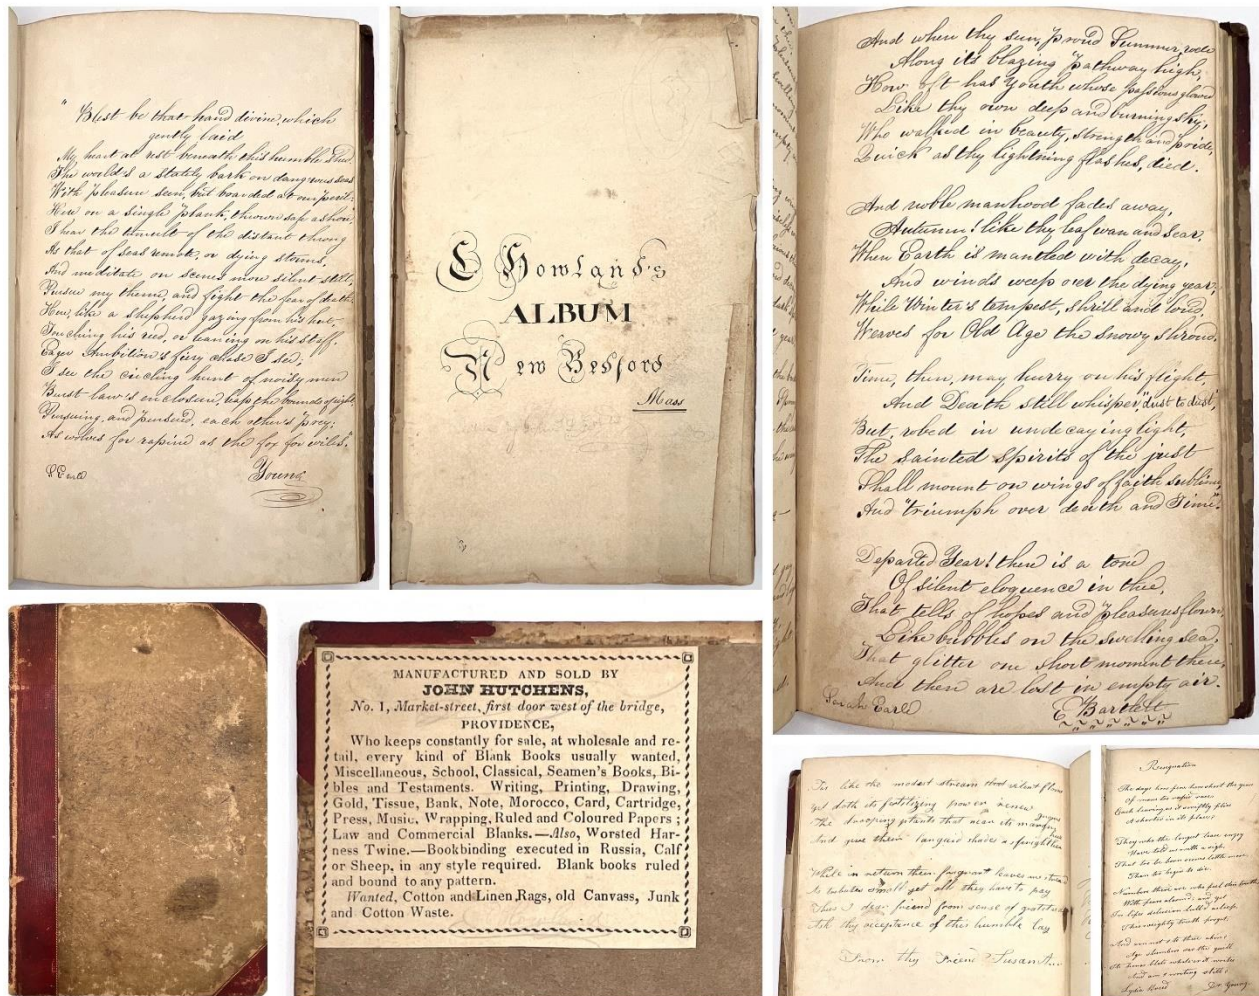 "Blest be that hand divine, which
gently laid
My heart at rest beneath this humble shed.
The world's a stately bark on dangerous seas
With pleasure seen, but boarded at our peril;
Here on a single plank, thrown safe ashore
I hear the tumult of the distant throng
As that of seas remote, or dying storms,
And meditate on scenes more silent still,
Pursue my theme, and fight the fear of death.
Here, like a shepherd gazing from his hut,
Touching his reed, or leaning on his staff,
Eager Ambition's fiery chase I see;
I see the circling hunt of noisy men
Burst law's enclosure, leap the bounds of right,
Pursuing, and pursued, each other's prey;
As wolves for rapine as the fox for wiles."
Earle
Young
Howland's
ALBUM
New Bedford
Mass
And when thy sun, proud Summer, rode
Along its blazing pathway high,
How oft has Youth whose passions glowed
Like thy own deep and burning sky,
Who walked in beauty, strength and pride,
Quick as thy lightning flashes, died.
And noble manhood fades away,
Autumn! like thy leaf wan and sear,
When Earth is mantled with decay,
And winds weep over the dying year,
While Winter's tempest, shrill and loud,
Weaves for Old Age the snowy shroud.
Time, then, may hurry on his flight,
And Death still whisper, "dust to dust",
But, robed in undecaying light,
The sainted spirits of the just
Shall mount on wings of faith sublime,
And "triumph over death and Time".
Departed Year! there is a tone
Of silent eloquence in thee,
That tells of hopes and pleasures flown,
Like bubbles on the swelling sea,
That glitter one short moment there,
And then are lost in empty air.
Sarah Earle
C Bartlett
MANUFACTURED AND SOLD BY
JOHN HUTCHENS,
No. 1, Market-street, first door west of the bridge,
PROVIDENCE,
Who keeps constantly for sale, at wholesale and re-
tail, every kind of Blank Books usually wanted,
Miscellaneous, School, Classical, Seamen's Books, Bi-
bles and Testaments. Writing, Printing, Drawing,
Gold, Tissue, Bank, Note, Morocco, Card, Cartridge,
Press, Music, Wrapping, Ruled and Coloured Papers ;
Law and Commercial Blanks.—Also, Worsted Har-
ness Twine.—Bookbinding executed in Russia, Calf
or Sheep, in any style required. Blank books ruled
and bound to any pattern.
Wanted, Cotton and Linen Rags, old Canvass, Junk
and Cotton Waste.
like the modest stream that silent flows
Yet doth its fertilizing power renew
The drooping plants that near its margin
And give their languid shades a
While in return their fragrant leaves
tribute small yet all they have to pay
Thus I dear friend from sense of gratitude
Ask thy acceptance of this humble lay
From thy Friend Susan
Resignation
The days how few how short the years
Of man's too rapid race
Each leaving as it swiftly flies
A shorter in its place;
They who the longest lease enjoy
Have told us with a sigh,
That to be born seems little more
Than to begin to die.
Numbers there are who feel this truth
With fears alarmed; and yet
In life's delusion lull'd asleep
This weighty truth forget.
And am not I to these akin;
Age slumbers o'er the quill
Its honor blots whate'er it writes
And am I writing still;
Lydia
Dr Young